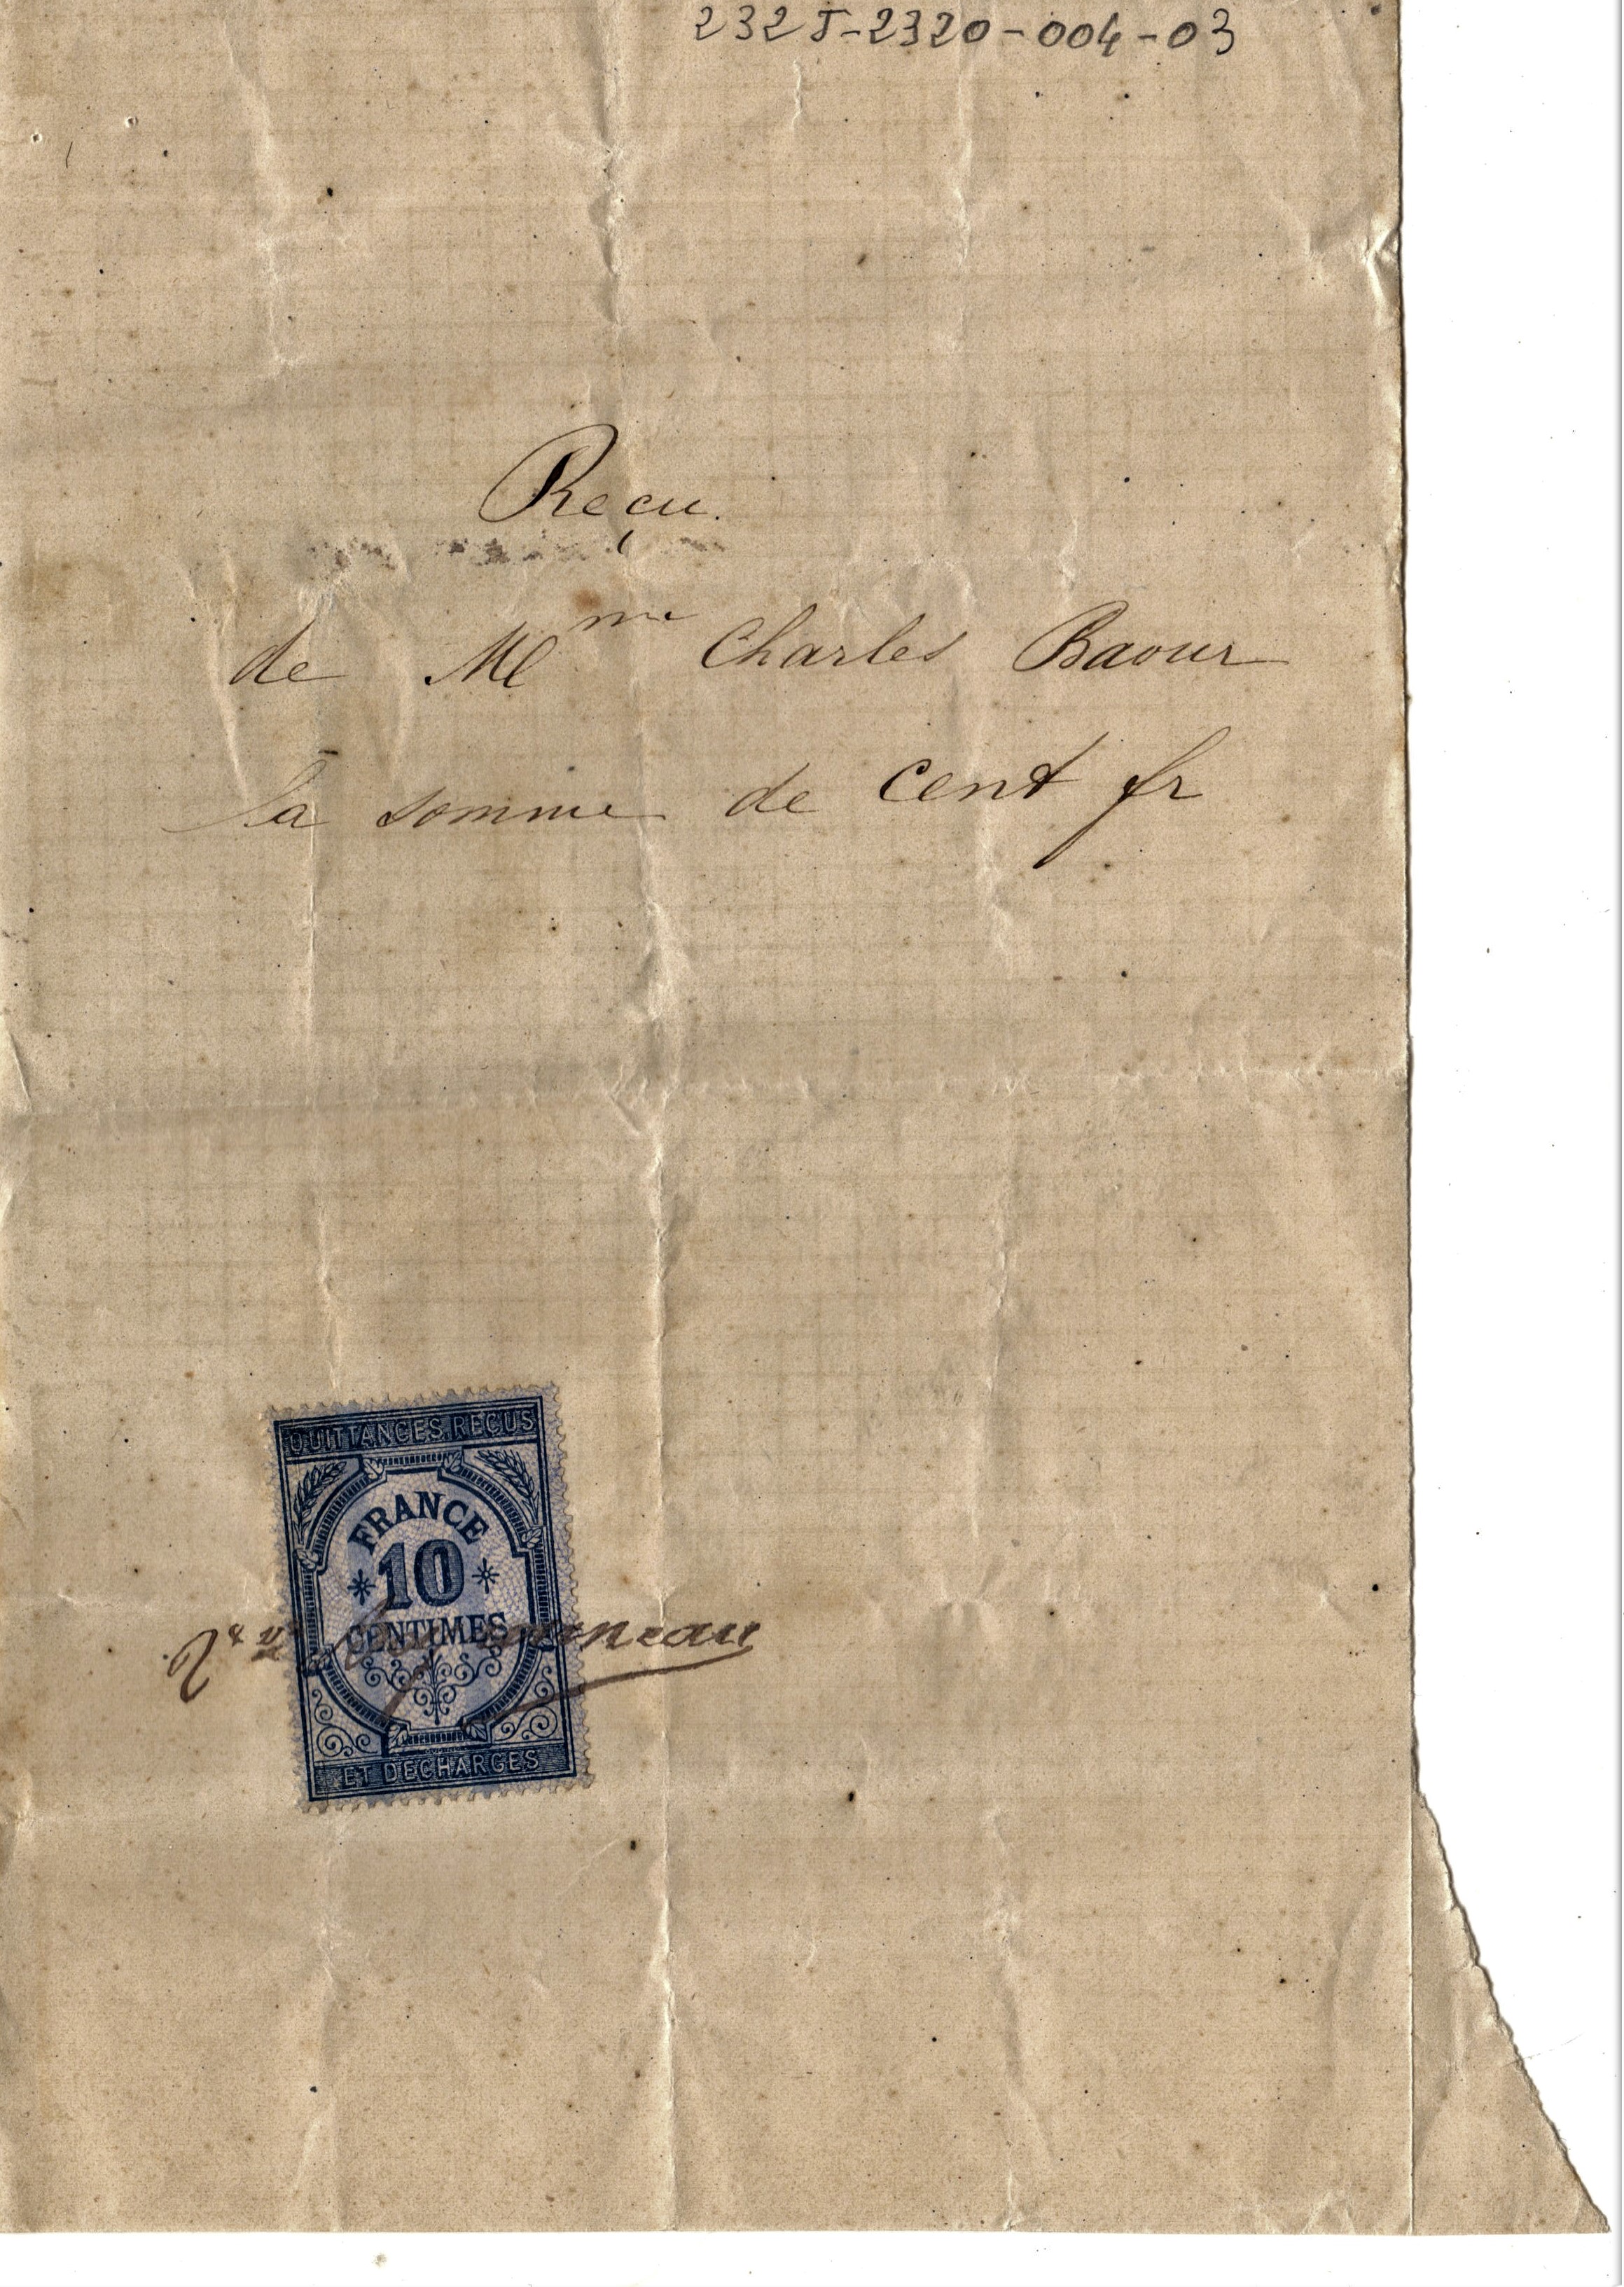 232 J-2320-004-03
Reçu.
de Mme Charles Baour
la somme de cent fr
QUITTANCES.REÇUS
FRANCE
10
CENTIMES
ET DÉCHARGES